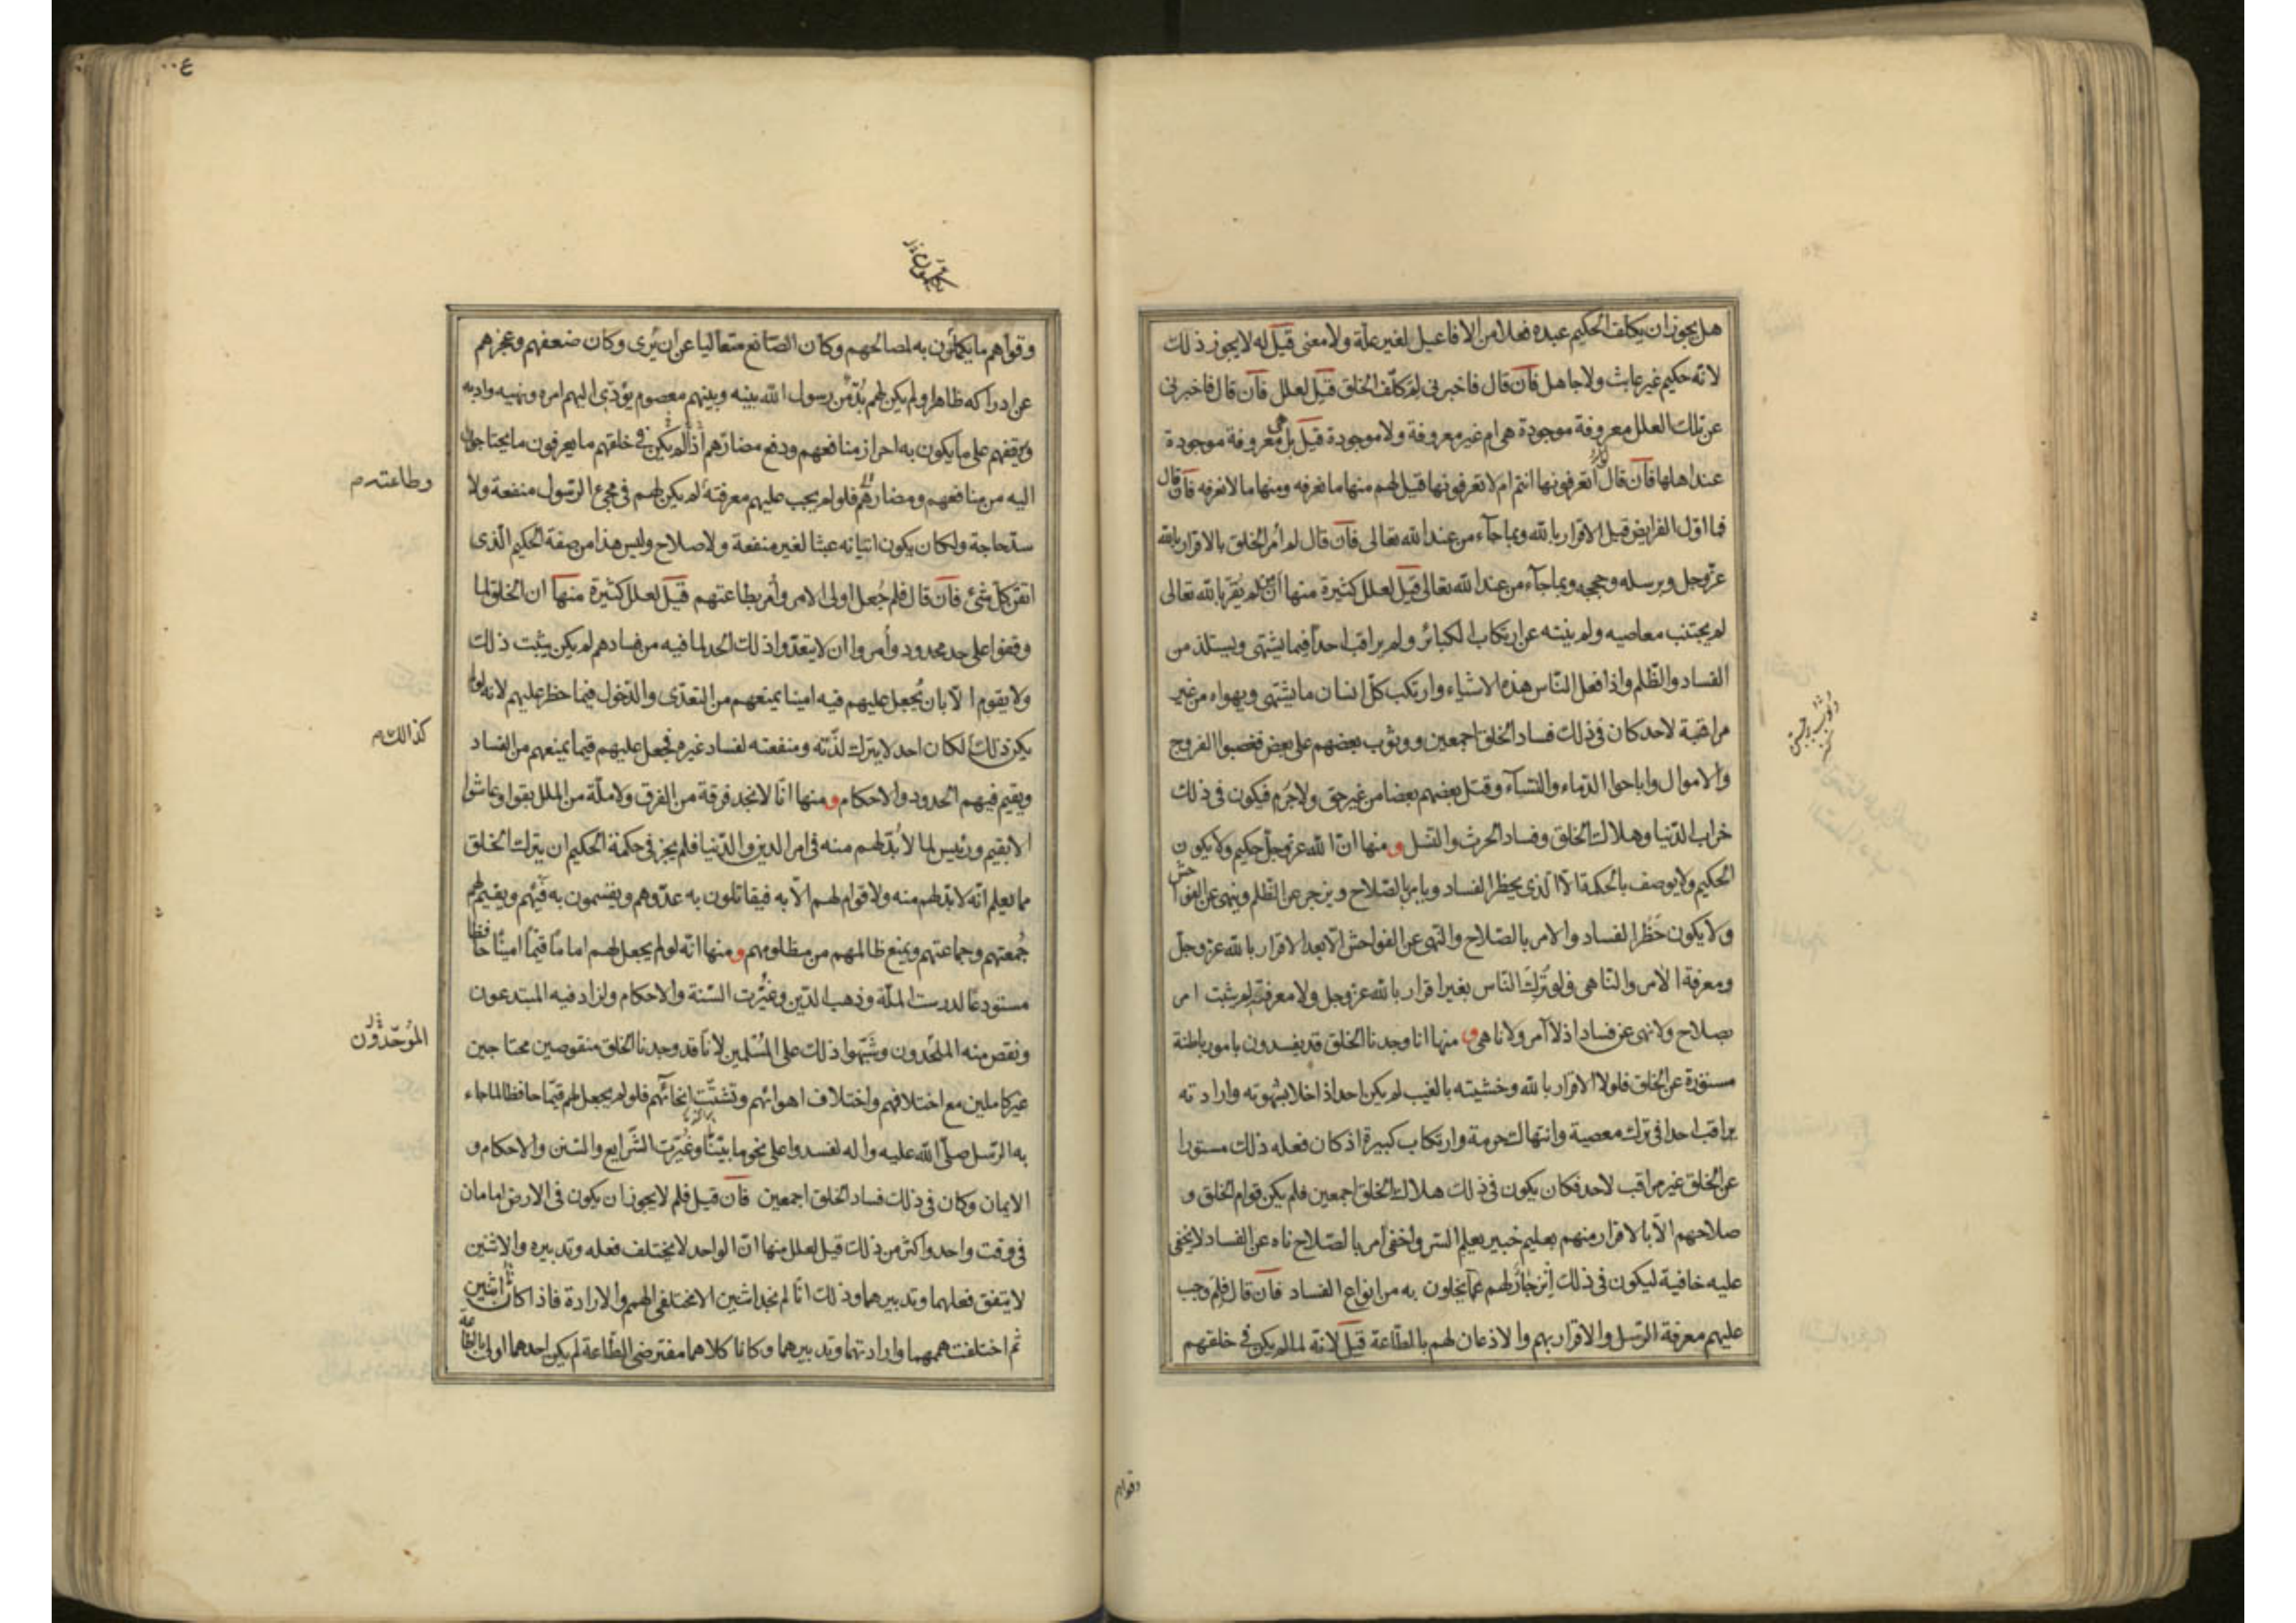 هل يجوز ان يكلف الحكيم عبده فعلا من الافاعيل لغير علة ولا معنى قيل له لا يجوز ذلك
لانه حكيم غير عابث ولا جاهل فان قال فاخبرنى لم كلّف الخلق قيل لعلل فان قال فاخبرنى
عن تلك العلل معروفة موجودة هى ام غير معروفة ولا موجودة قيل بل هى معروفة موجودة
عند اهلها فان قال أتعرفونها انتم ام لا تعرفونها قيل لهم منها ما نعرفه ومنها ما لا نعرفه فان قال
فما اوّل الفرايض قيل الاقرار بالله وبما جآء من عند الله تعالى فان قال لم أمر الخلق بالاقرار بالله
عزّ وجل وبرسله وحججه وبما جآء من عند الله تعالى قيل لعلل كثيرة منها انّ من لم يُقرّ بالله تعالى
لم يجتنب معاصيه ولم ينته عن ارتكاب الكبائر ولم يراقب احداً فيما يشتهى ويستلذ من
الفساد والظّلم واذا فعل النّاس هذه الاشياء وارتكب كلّ انسان ما يشتهى ويهواه من غير
مراقبة لاحد كان فى ذلك فساد الخلق اجمعين ووثوب بعضهم على بعض فغصبوا الفروج
والاموال واباحوا الدّماء والنّسآء وقتل بعضهم بعضا من غير حق ولا جُرم فيكون فى ذلك
خراب الدّنيا وهلاك الخلق وفساد الحرث والنّسل و منها انّ الله عزّ وجلّ حكيم ولا يكون
الحكيم ولا يوصف بالحكمة الّا الّذى يحظر الفساد ويامر بالصّلاح ويزجر عن الظّلم وينهى عن الفواحش
ولا يكون حَظْر الفساد والامر بالصّلاح والنّهى عن الفواحش الّا بعد الاقرار بالله عزّ وجلّ
ومعرفة الآمر والنّاهى فلو تُرِكَ النّاس بغير اقرار بالله عزّ وجل ولا معرفته لم يثبت امر
بصلاح ولا نهى عن فساد اذ لا آمر ولا ناهى و منها انا وجدنا الخلق قد يفسدون بامور باطنة
مستورة عن الخلق فلولا الاقرار بالله وخشيته بالغيب لم يكن احد اذا خلا بشهوته وارادته
يراقب احدا فى ترك معصية وانتهاك حرمة وارتكاب كبيرة اذ كان فعله ذلك مستورا
عن الخلق غير مراقب لاحد فكان يكون فى ذلك هلاك الخلق اجمعين فلم يكن قوام الخلق و
صلاحهم الّا بالاقرار منهم بعليم خبير يعلم السّر واخفى آمر بالصّلاح ناه عن الفساد لا يخفى
عليه خافية ليكون فى ذلك انزجار لهم عمّا يخلون به من انواع الفساد فان قال فلم وجب
عليهم معرفة الرّسل والاقرار بهم والاذعان لهم بالطّاعة قيل لانّه لما لم يكن فى خلقهم
وقواهم
وقواهم ما يكملون به لصالحهم وكان الصّانع متعاليا عن ان يُرى وكان ضعفهم وعجزهم
عن ادراكه ظاهرا ولم يكن لهم بُدّ من رسول الله بينه وبينهم معصوم يؤدّى اليهم امره ونهيه وادبه
ويوقفهم على ما يكون به احراز منافعهم ودفع مضارّهم اذ لم يكن فى خلقهم ما يعرفون ما يحتاجون
وطاعته م
اليه من منافعهم ومضارّهم فلو لم يجب عليهم معرفته لم يكن لهم فى مجئ الرّسول منفعة ولا
سدّ حاجة ولكان يكون اتيانه عبثا لغير منفعة ولا صلاح وليس هذا من صفة الحكيم الّذى
اتقن كلّ شئ فان قال فلم جُعل أولى الامر وأُمر بطاعتهم قيل لعلل كثيرة منها ان الخلق لما
وقفوا على حد محدود وأُمروا ان لا يتعدّوا ذلك الحد لما فيه من فسادهم لم يكن يثبت ذلك
ولا يقوم الّا بان يُجعل عليهم فيه امينا يمنعهم من التعدّى والدّخول فيما حظر عليهم لانه لو لم
كذالك م
يكن ذلك لكان احد لا يترك لذّته ومنفعته لفساد غيره فجعل عليهم قيما يمنعهم من الفساد
ويقيم فيهم الحدود والاحكام و منها انّا لا نجد فرقة من الفرق ولا ملّة من الملل بقوا وعاشوا
الا بقيم ورئيس لما لا بُدّ لهم منه فى امر الدين والدّنيا فلم يجز فى حكمة الحكيم ان يترك الخلق
مما يعلم انّه لا بدّ لهم منه ولا قوام لهم الّا به فيقاتلون به عدّوهم ويقسمون به فَيْئهم ويقيم لهم
جُمعتهم وجماعتهم ويمنع ظالمهم من مظلومهم و منها انّه لو لم يجعل لهم اماماً قيّماً اميناً حافظا
مستودعًا لدرست الملّة وذهب الدّين وغُيّرت السّنة والاحكام ولزاد فيه المبتدعون
الموحّدون
ونقص منه الملحدون وشَبَّهوا ذلك على المُسْلمين لانّا قد وجدنا الخلق منقوصين محتاجين
غير كاملين مع اختلافهم واختلاف اهوائهم وتشتّت انحائهم فلو لم يجعل لهم قيّما حافظا لما جاء
به الرّسل صلّى الله عليه واله لفسدوا على نحو ما بيّنّا وغُيّرت الشّرايع والسّنن والاحكام و
الايمان وكان فى ذلك فساد الخلق اجمعين فان قيل فلم لا يجوز ان يكون فى الارض امامان
فى وقت واحد واكثر من ذلك قيل لعلل منها انّ الواحد لا يختلف فعله وتدبيره والاثنين
لا يتفق فعلهما وتدبيرهما وذلك انّا لم نجد اثنين الا مختلفى الهمم والارادة فاذا كانا اثنين
ثم اختلفت هممهما وارادتهما وتدبيرهما وكانا كلاهما مفترضى الطّاعة لم يكن احدهما اولى بالطاعة